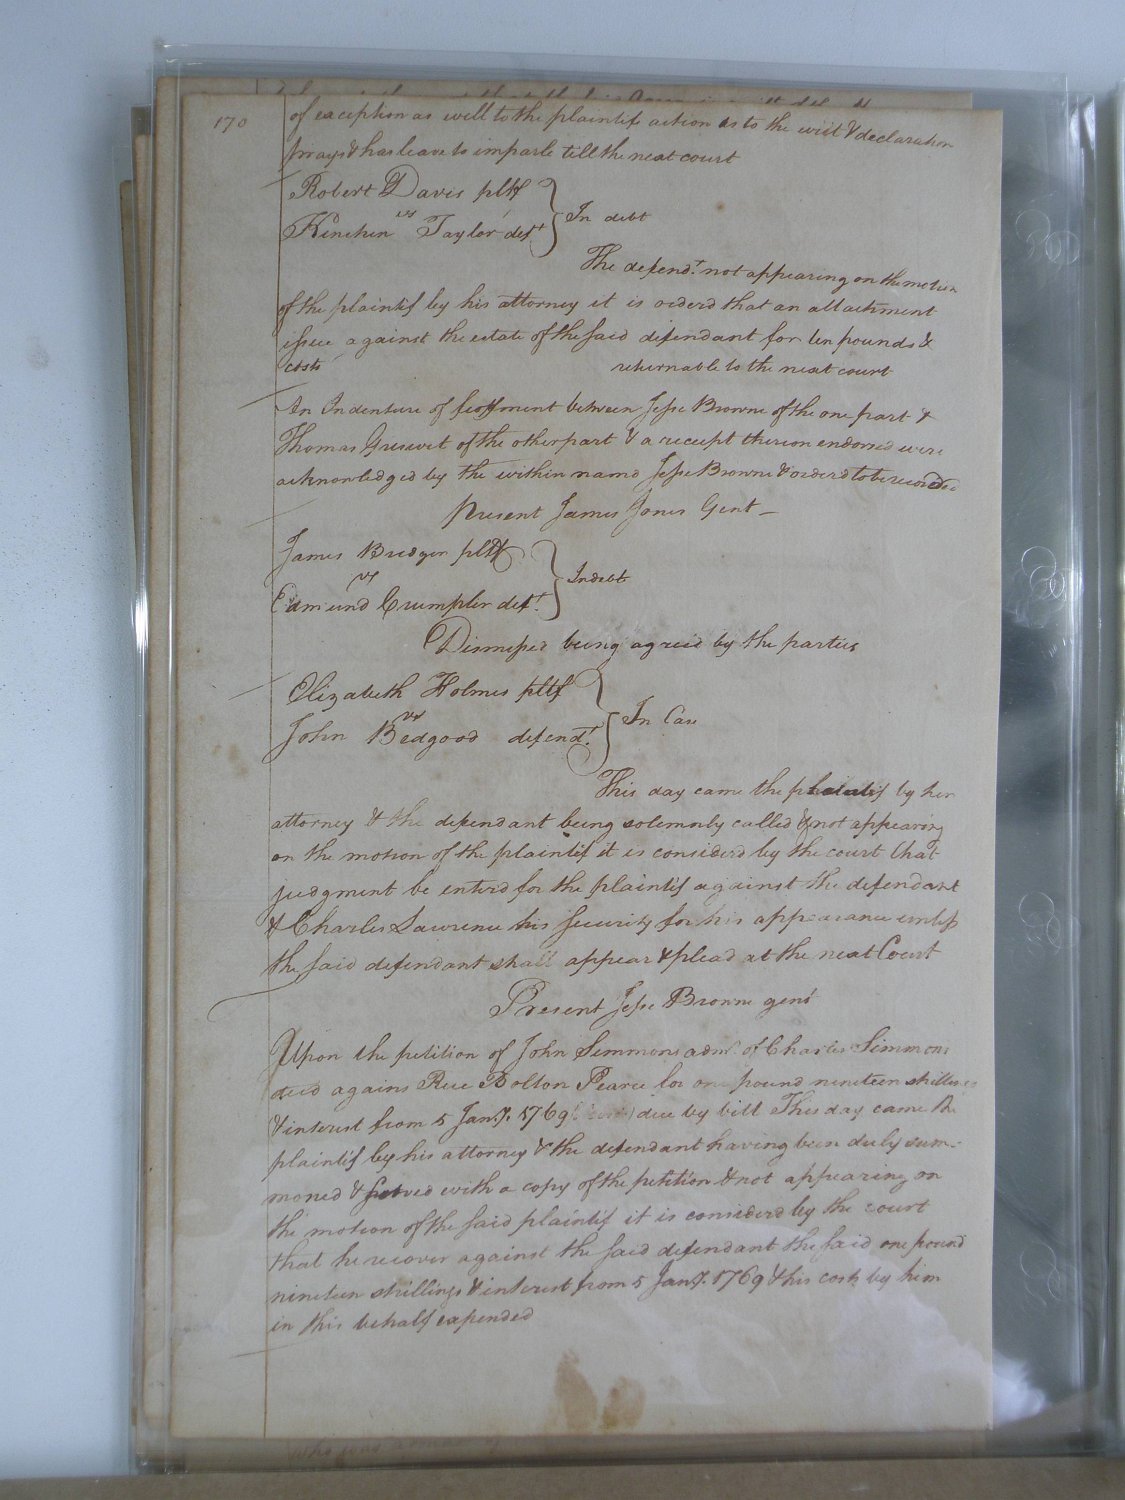 170
of exception as well to the plaintifs action as to the writ & declaration
prays & has leave to imparle till the next court
Robert Davis pltf
vs
Kinchin Taylor deft
In debt
The defendt. not appearing on the motion
of the plaintif by his attorney it is orderd that an attachment
issue against the estate of the said defendant for ten pounds &
costs returnable to the next court
An Indenture of feoffment between Jesse Browne of the one part &
Thomas Gresswit of the other part & a receipt thereon endorsed were
acknowledged by the within named Jesse Browne & orderd to be recorded
Present James Jones Gent
James Bridger pltf
vs
Edmund Crumpler deft.
In debt
Dismissed being agreed by the parties
Elizabeth Holmes pltf
vs
John Bedgood defendt.
In Case
This day came the plaintif by her
attorney & the defendant being solemnly called & not appearing
on the motion of the plaintif it is considerd by the court that
judgment be enterd for the plaintif against the defendant
& Charles Lawrence his security for his appearance unless
the said defendant shall appear & plead at the next Court
Present Jesse Browne gent
Upon the petition of John Simmons admr. of Charles Simmons
decd agains Rue Bolton Pearce for one pound nineteen shillings
& interest from 5 Jany. 1769 due by bill This day came the
plaintif by his attorney & the defendant having been duly sum-
moned & served with a copy of the petition & not appearing on
the motion of the said plaintif it is considerd by the court
that he recover against the said defendant the said one pound
nineteen shillings & interest from 5 Jany. 1769 & his costs by him
in this behalf expended